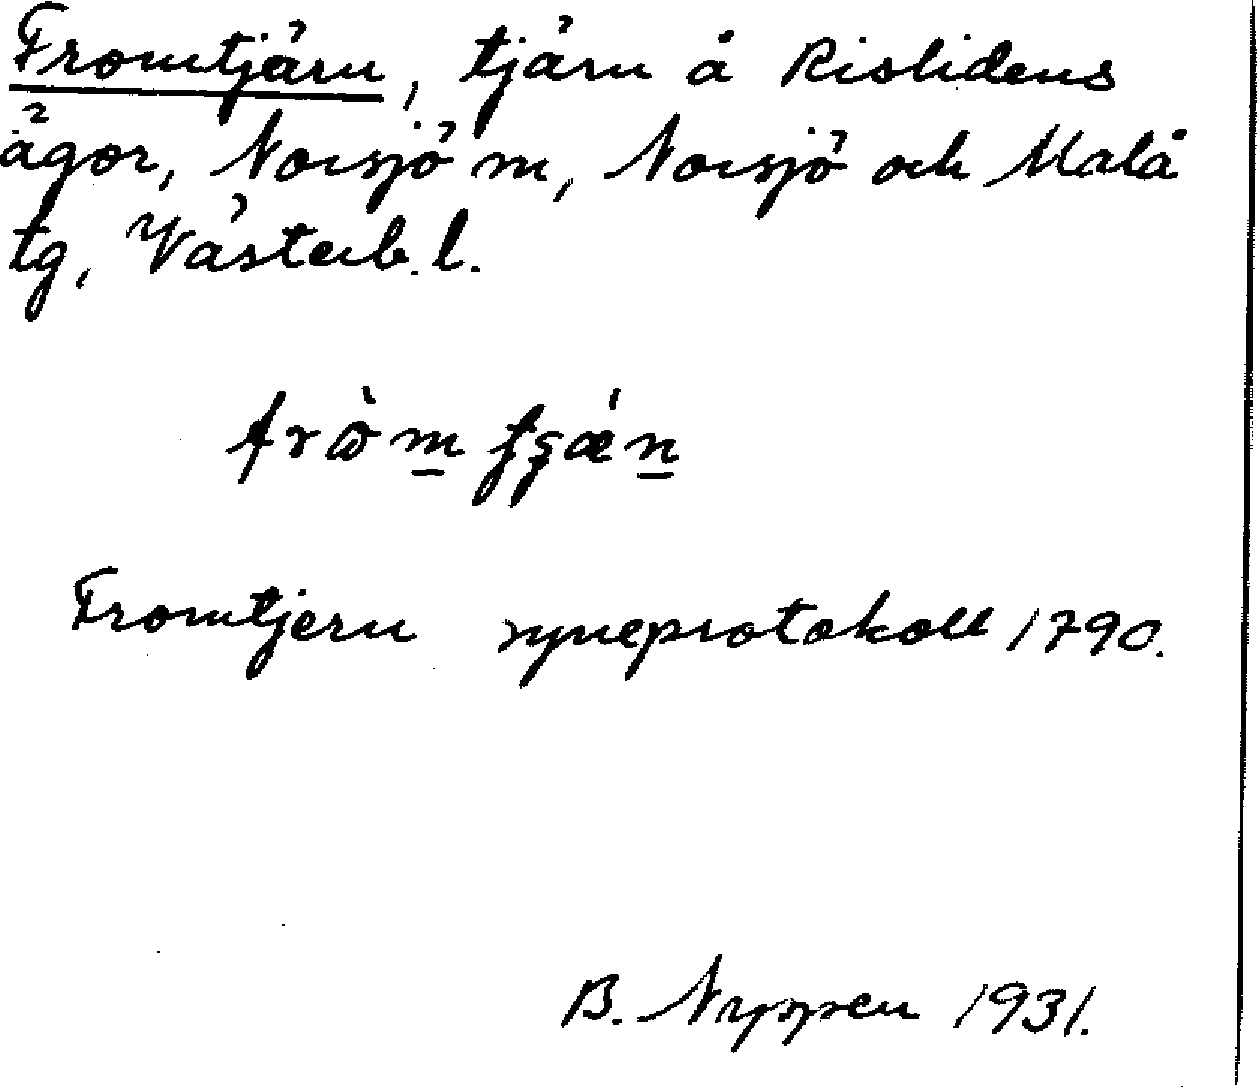 Fromtjärn, tjärn å Rislidens
ägor, Norsjö sn, Norsjö och Malå
tg, Västerb. l.
Fromtjern syneprotokoll 1790.
B. Nyppen 1931.